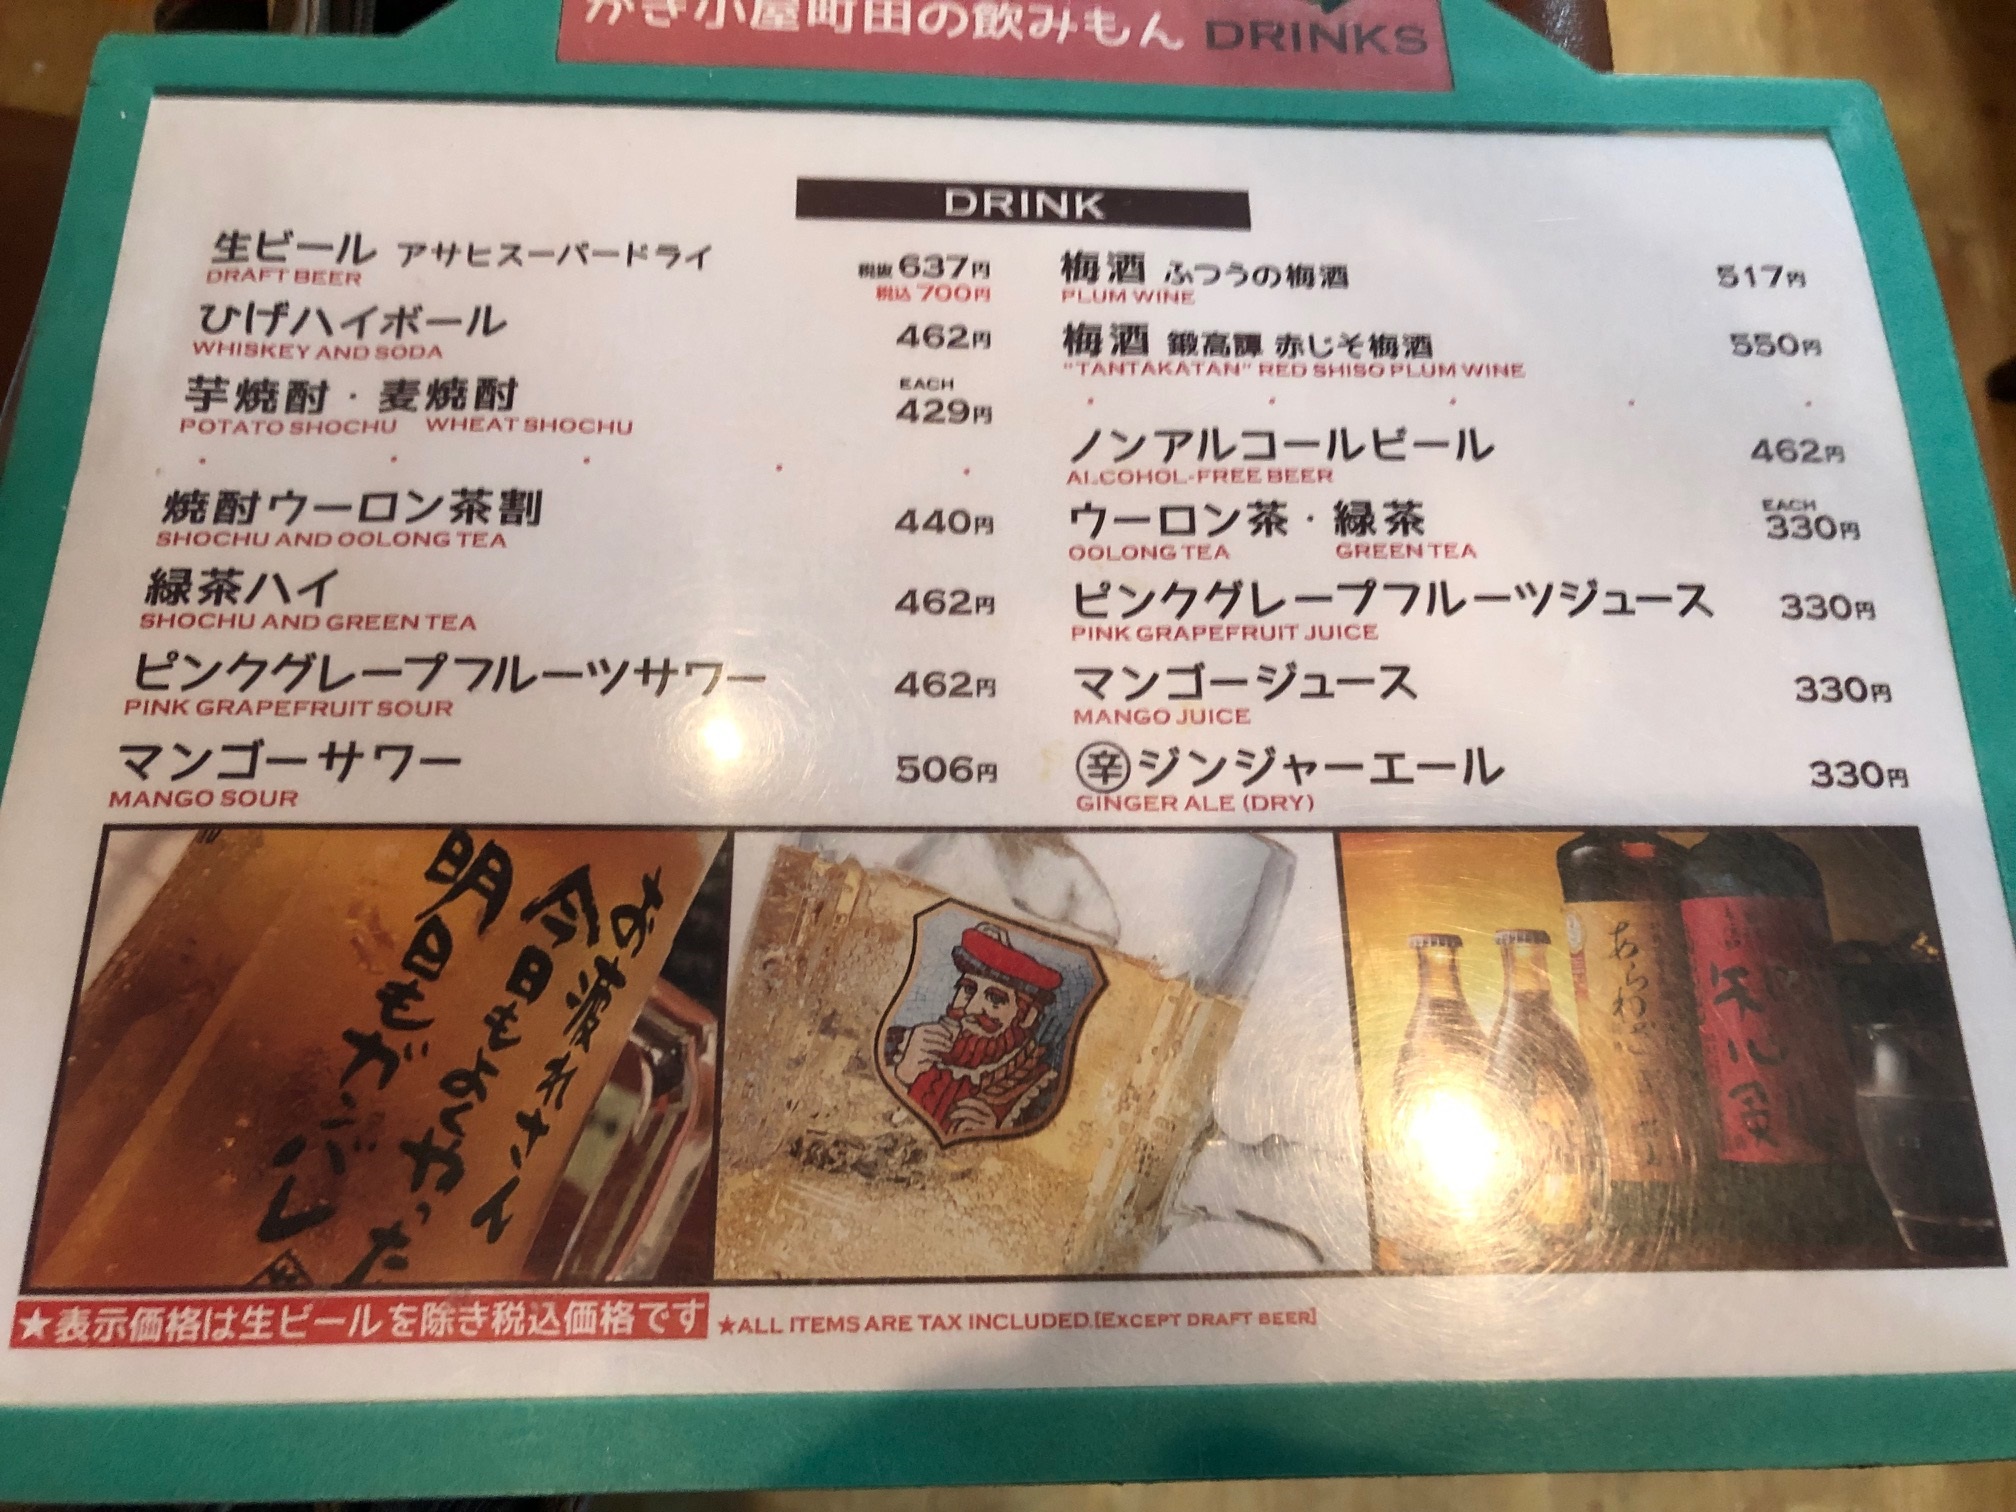 かき小屋町田の飲みもん DRINKS
DRINK
生ビール アサヒスーパードライ 税抜637円
DRAFT BEER 税込700円
ひげハイボール 462円
WHISKEY AND SODA
芋焼酎・麦焼酎 EACH 429円
POTATO SHOCHU WHEAT SHOCHU
焼酎ウーロン茶割 440円
SHOCHU AND OOLONG TEA
緑茶ハイ 462円
SHOCHU AND GREEN TEA
ピンクグレープフルーツサワー 462円
PINK GRAPEFRUIT SOUR
マンゴーサワー 506円
MANGO SOUR
梅酒 ふつうの梅酒 517円
PLUM WINE
梅酒 鍛高譚 赤じそ梅酒 550円
"TANTAKATAN" RED SHISO PLUM WINE
ノンアルコールビール 462円
ALCOHOL-FREE BEER
ウーロン茶・緑茶 EACH 330円
OOLONG TEA GREEN TEA
ピンクグレープフルーツジュース 330円
PINK GRAPEFRUIT JUICE
マンゴージュース 330円
MANGO JUICE
辛ジンジャーエール 330円
GINGER ALE (DRY)
お疲れさん
今日もよくやった
明日もがんばレ
あらわざ
★表示価格は生ビールを除き税込価格です ★ALL ITEMS ARE TAX INCLUDED.[EXCEPT DRAFT BEER]